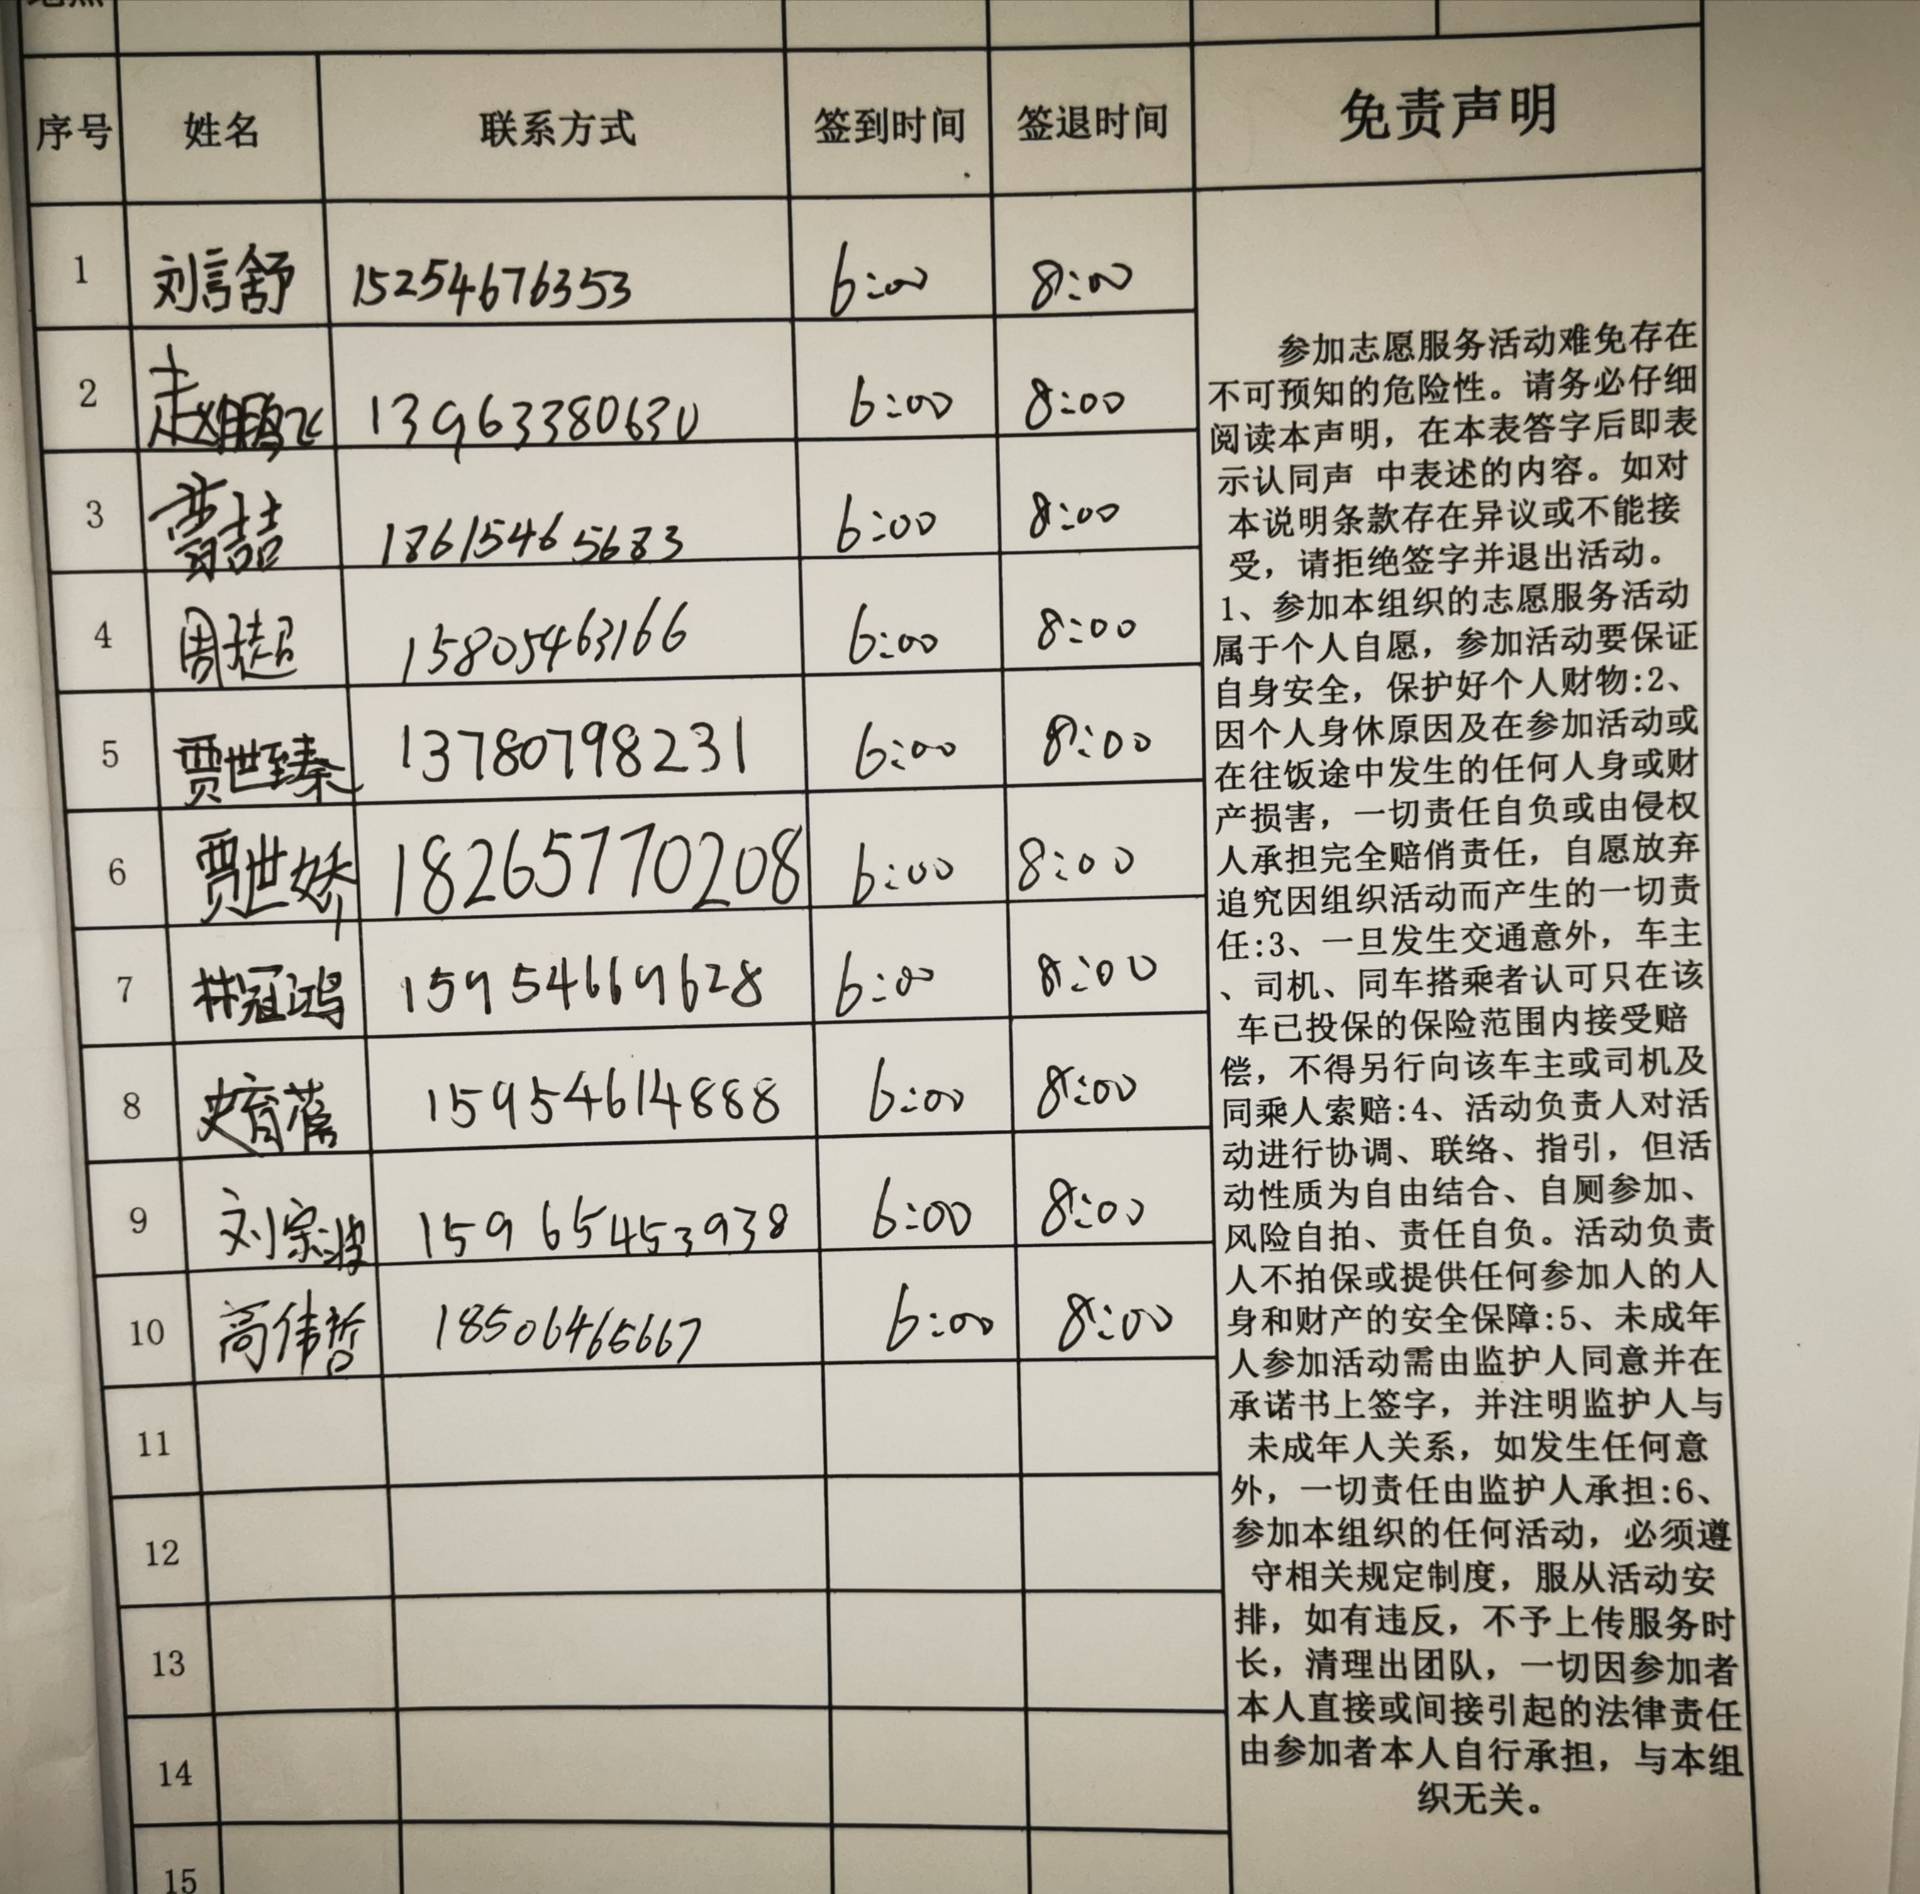 序号 姓名 联系方式 签到时间 签退时间 免责声明
1 刘言舒 15254676353 6:00 8:00
2 赵鹏飞 13963380630 6:00 8:00
3 18615465683 6:00 8:00
4 周超 15805463166 6:00 8:00
5 贾世臻 13780798231 6:00 8:00
6 贾世娇 18265770208 6:00 8:00
7 林冠鸿 15954669628 6:00 8:00
8 15954614888 6:00 8:00
9 刘宗 15965453938 6:00 8:00
10 高伟哲 18506465667 6:00 8:00
11
12
13
14
15
参加志愿服务活动难免存在
不可预知的危险性。请务必仔细
阅读本声明，在本表答字后即表
示认同声 中表述的内容。如对
本说明条款存在异议或不能接
受，请拒绝签字并退出活动。
1、参加本组织的志愿服务活动
属于个人自愿，参加活动要保证
自身安全，保护好个人财物:2、
因个人身休原因及在参加活动或
在往饭途中发生的任何人身或财
产损害，一切责任自负或由侵权
人承担完全赔俏责任，自愿放弃
追究因组织活动而产生的一切责
任:3、一旦发生交通意外，车主
、司机、同车搭乘者认可只在该
车已投保的保险范围内接受赔
偿，不得另行向该车主或司机及
同乘人索赔:4、活动负责人对活
动进行协调、联络、指引，但活
动性质为自由结合、自厕参加、
风险自拍、责任自负。活动负责
人不拍保或提供任何参加人的人
身和财产的安全保障:5、未成年
人参加活动需由监护人同意并在
承诺书上签字，并注明监护人与
未成年人关系，如发生任何意
外，一切责任由监护人承担:6、
参加本组织的任何活动，必须遵
守相关规定制度，服从活动安
排，如有违反，不予上传服务时
长，清理出团队，一切因参加者
本人直接或间接引起的法律责任
由参加者本人自行承担，与本组
织无关。